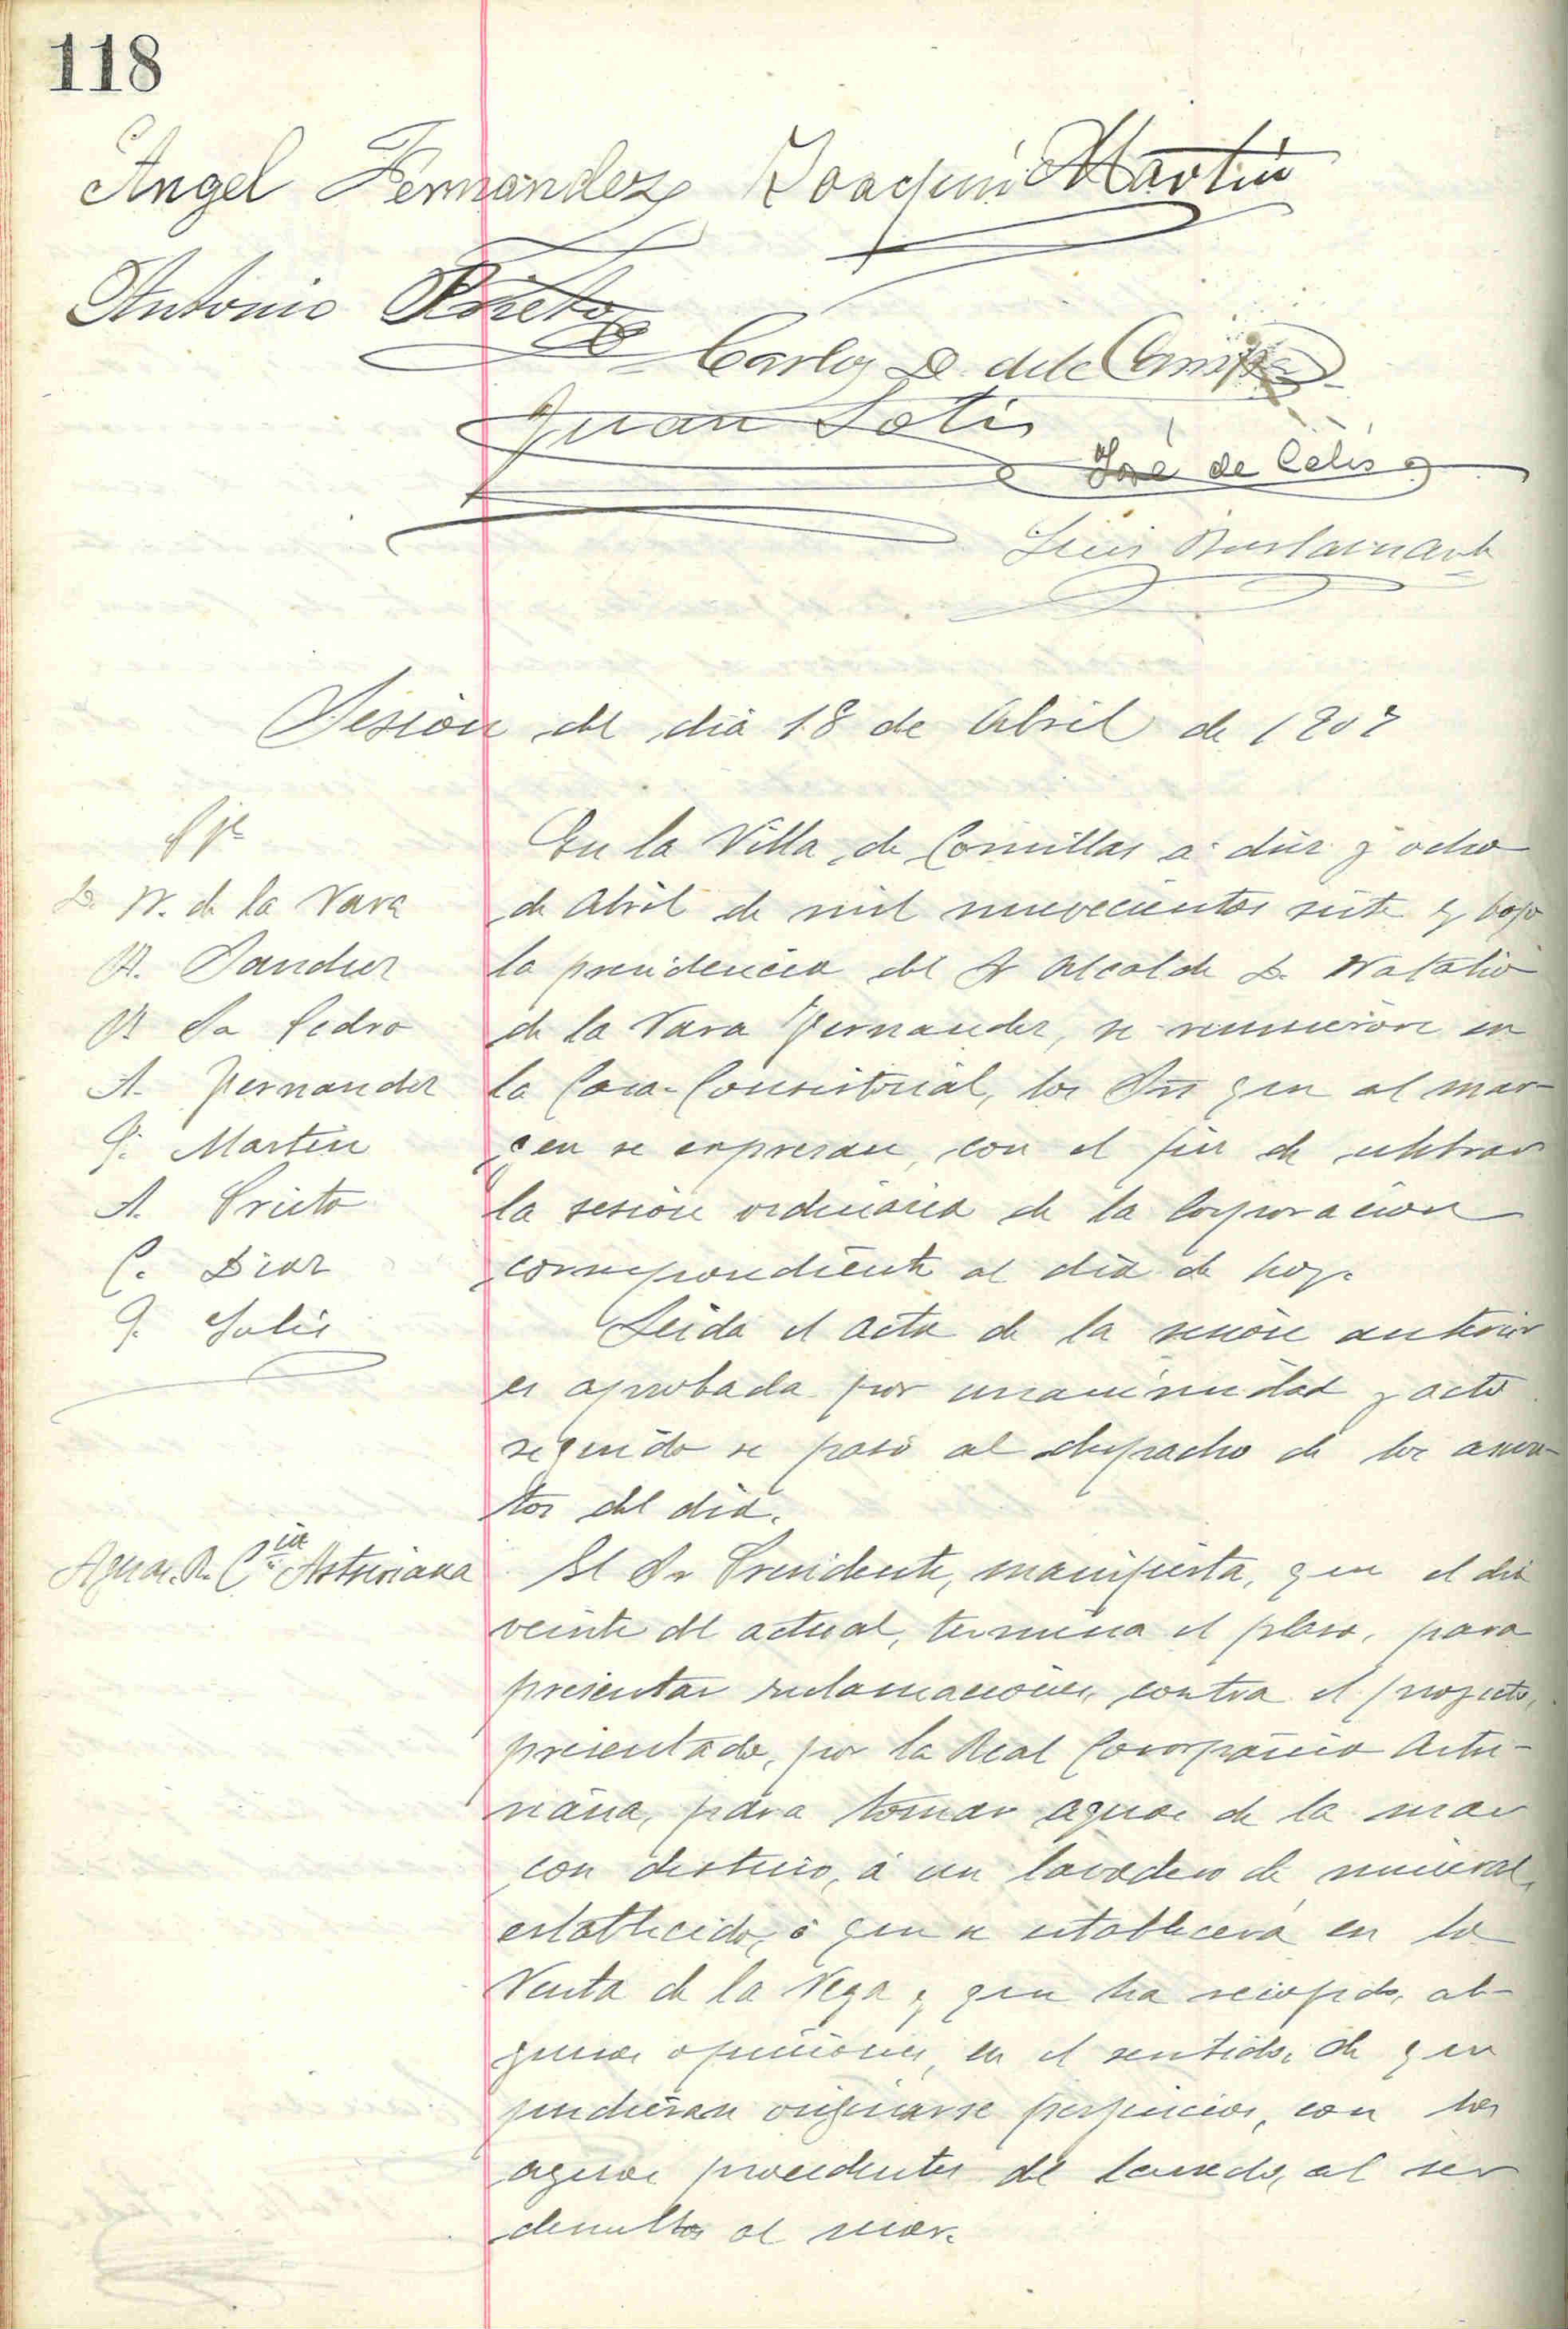 118
Angel Fernandez Joaquin Martin
Antonio Prieto
Carlos D. de la Campa
Juan Solis
José de Celis
Luis Bustamante
Sesión del dia 18 de Abril de 1907
D. N. de la Vara
A. Sanchez
A. Fernandez
J. Martin
A. Prieto
C. Diaz
J. Solis
En la Villa de Comillas a diez y ocho
de Abril de mil novecientos siete y bajo
la presidencia del Sr Alcalde D. Natalio
de la Vara Fernandez, se reunieron en
la Casa-Consistorial, los Srs que al mar-
gen se expresan, con el fin de celebrar
la sesión ordinaria de la Corporación
correspondiente al dia de hoy.
Leida el acta de la sesión anterior
es aprobada por unanimidad y acto
seguido se pasó al despacho de los asun-
tos del dia.
Aguas. R. Cia Asturiana
El Sr Presidente, manifiesta, que el dia
veinte del actual, termina el plazo, para
presentar reclamaciones, contra el proyecto,
presentado, por la Real Compañia Astu-
riana, para tomar aguas de la mar
con destino, á un lavadero de mineral,
establecido, ó que se establecerá en la
Venta de la Vega y que ha recogido, al-
gunas opiniones, en el sentido, de que
pudieran originarse perjuicios, con las
aguas procedentes del lavado, al ser
devueltas al mar.